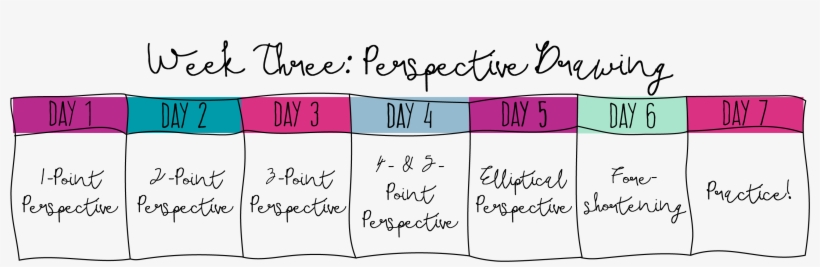 Week Three: Perspective Drawing
DAY 1
DAY 2
DAY 3
DAY 4
DAY 5
DAY 6
DAY 7
1-Point
Perspective
2-Point
Perspective
3-Point
Perspective
4- & 5-
Point
Perspective
Elliptical
Perspective
Fore-
shortening
Practice!